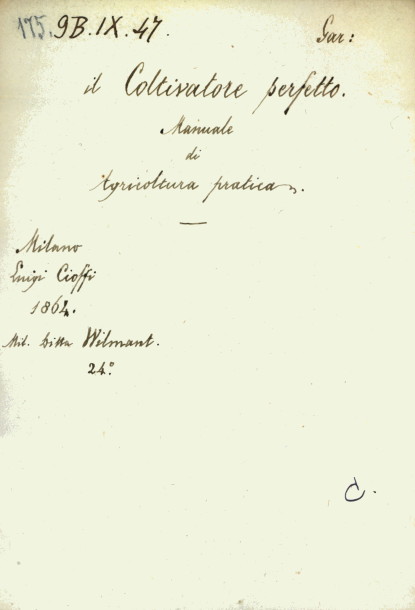 175. 9B. IX. 47. Gar:
il Coltivatore perfetto.
Manuale
di
Agricoltura pratica.
Milano
Luigi Cioffi
1864.
Mil. Ditta Wilmant.
24.°
C.